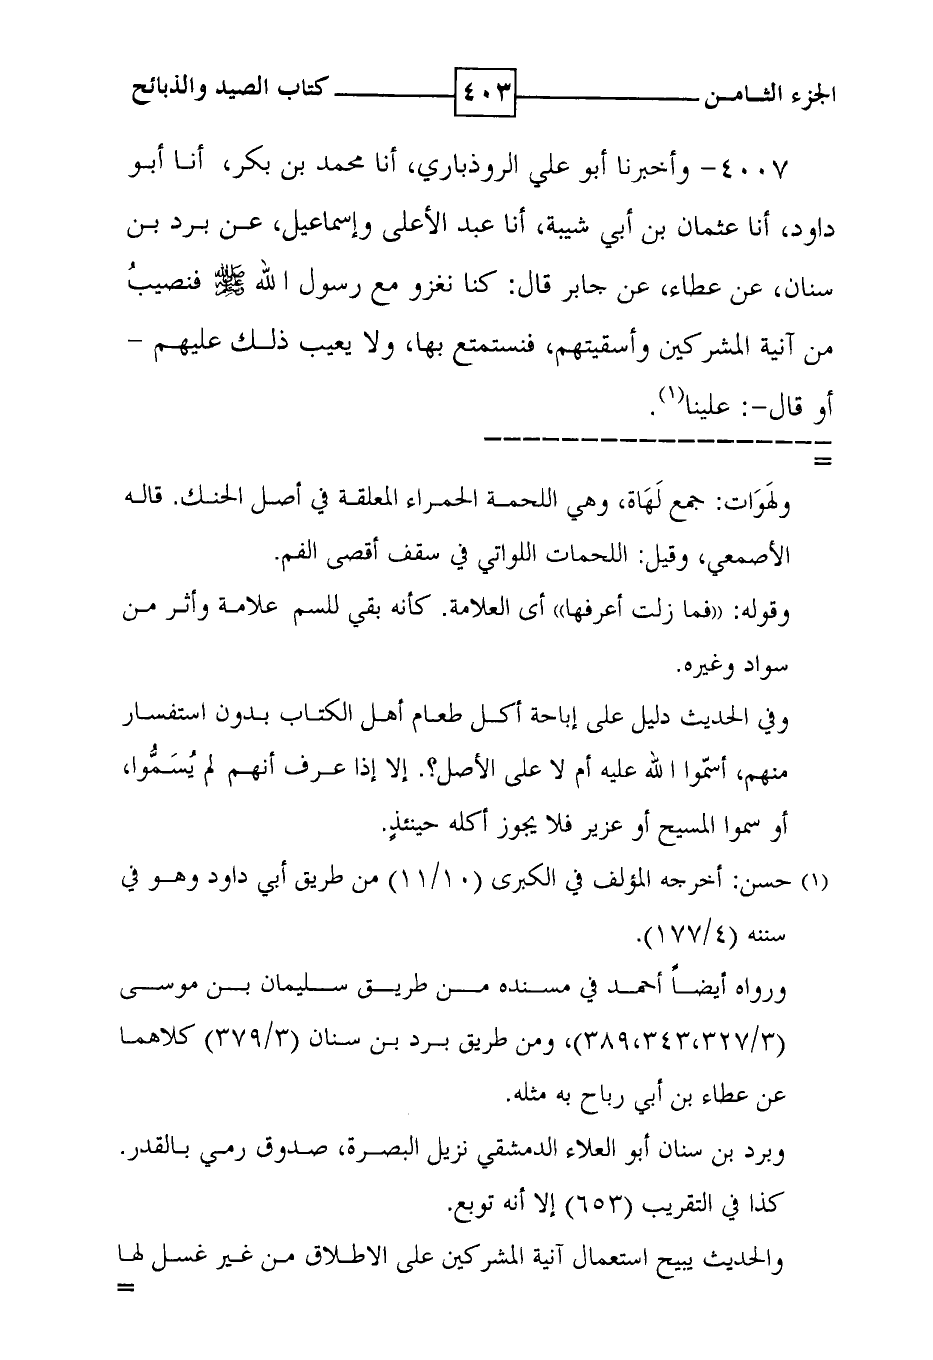 الجزء الثامن ٤٠٣ كتاب الصيد والذبائح
٤٠٠٧- وأخبرنا أبو علي الروذباري، أنا محمد بن بكر، أنا أبو
داود، أنا عثمان بن أبي شيبة، أنا عبد الأعلى وإسماعيل، عن برد بن
سنان، عن عطاء، عن جابر قال: كنا نغزو مع رسول الله ﷺ فنصيبُ
من آنية المشركين وأسقيتهم، فنستمتع بها، ولا يعيب ذلك عليهم -
أو قال-: علينا(١).
=
ولَهَوَات: جمع لَهَاة، وهي اللحمة الحمراء المعلقة في أصل الحنك. قاله
الأصمعي، وقيل: اللحمات اللواتي في سقف أقصى الفم.
وقوله: ((فما زلت أعرفها)) أى العلامة. كأنه بقي للسم علامة وأثر من
سواد وغيره.
وفي الحديث دليل على إباحة أكل طعام أهل الكتاب بدون استفسار
منهم، أسمّوا الله عليه أم لا على الأصل؟. إلا إذا عرف أنهم لم يُسَمُّوا،
أو سموا المسيح أو عزير فلا يجوز أكله حينئذٍ.
(١) حسن: أخرجه المؤلف في الكبرى (١١/١٠) من طريق أبي داود وهو في
سننه (١٧٧/٤).
ورواه أيضاً أحمد في مسنده من طريق سليمان بن موسى
(٣٨٩،٣٤٣،٣٢٧/٣)، ومن طريق برد بن سنان (٣٧٩/٣) كلاهما
عن عطاء بن أبي رباح به مثله.
وبرد بن سنان أبو العلاء الدمشقي نزيل البصرة، صدوق رمي بالقدر.
كذا في التقريب (٦٥٣) إلا أنه توبع.
والحديث يبيح استعمال آنية المشركين على الاطلاق من غير غسل لها
=